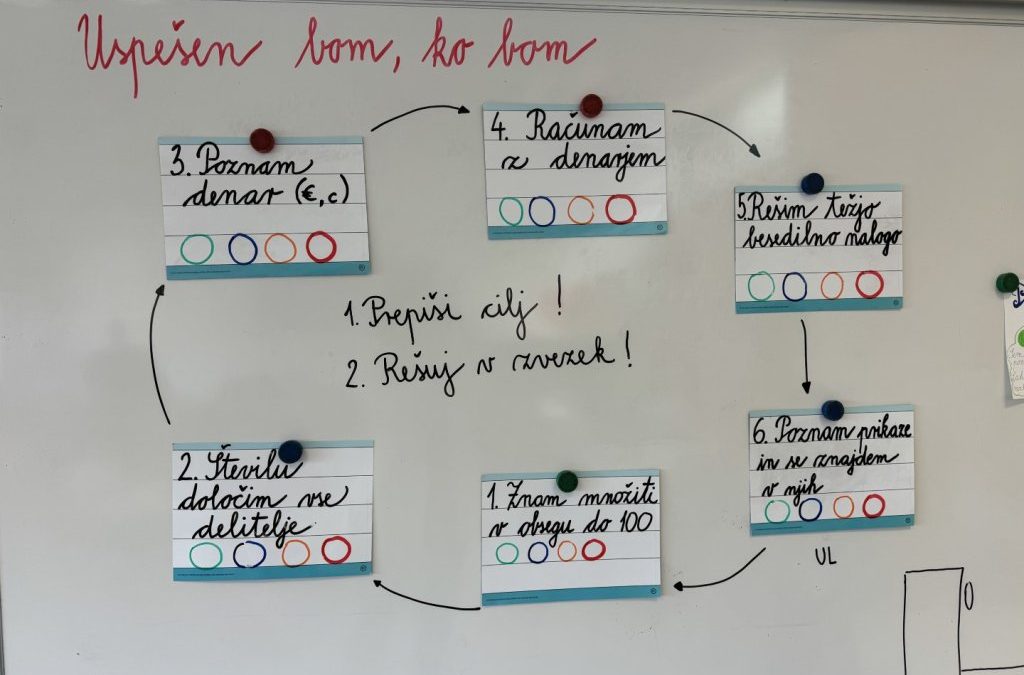 Uspešen bom, ko bom
3. Poznam
denar (€, c)
4. Računam
z denarjem
5. Rešim težjo
besedilno nalogo
1. Prepiši cilj!
2. Rešuj v zvezek!
2. Številu
določim vse
delitelje
1. Znam množiti
v obsegu do 100
6. Poznam prikaze
in se znajdem
v njih
UL